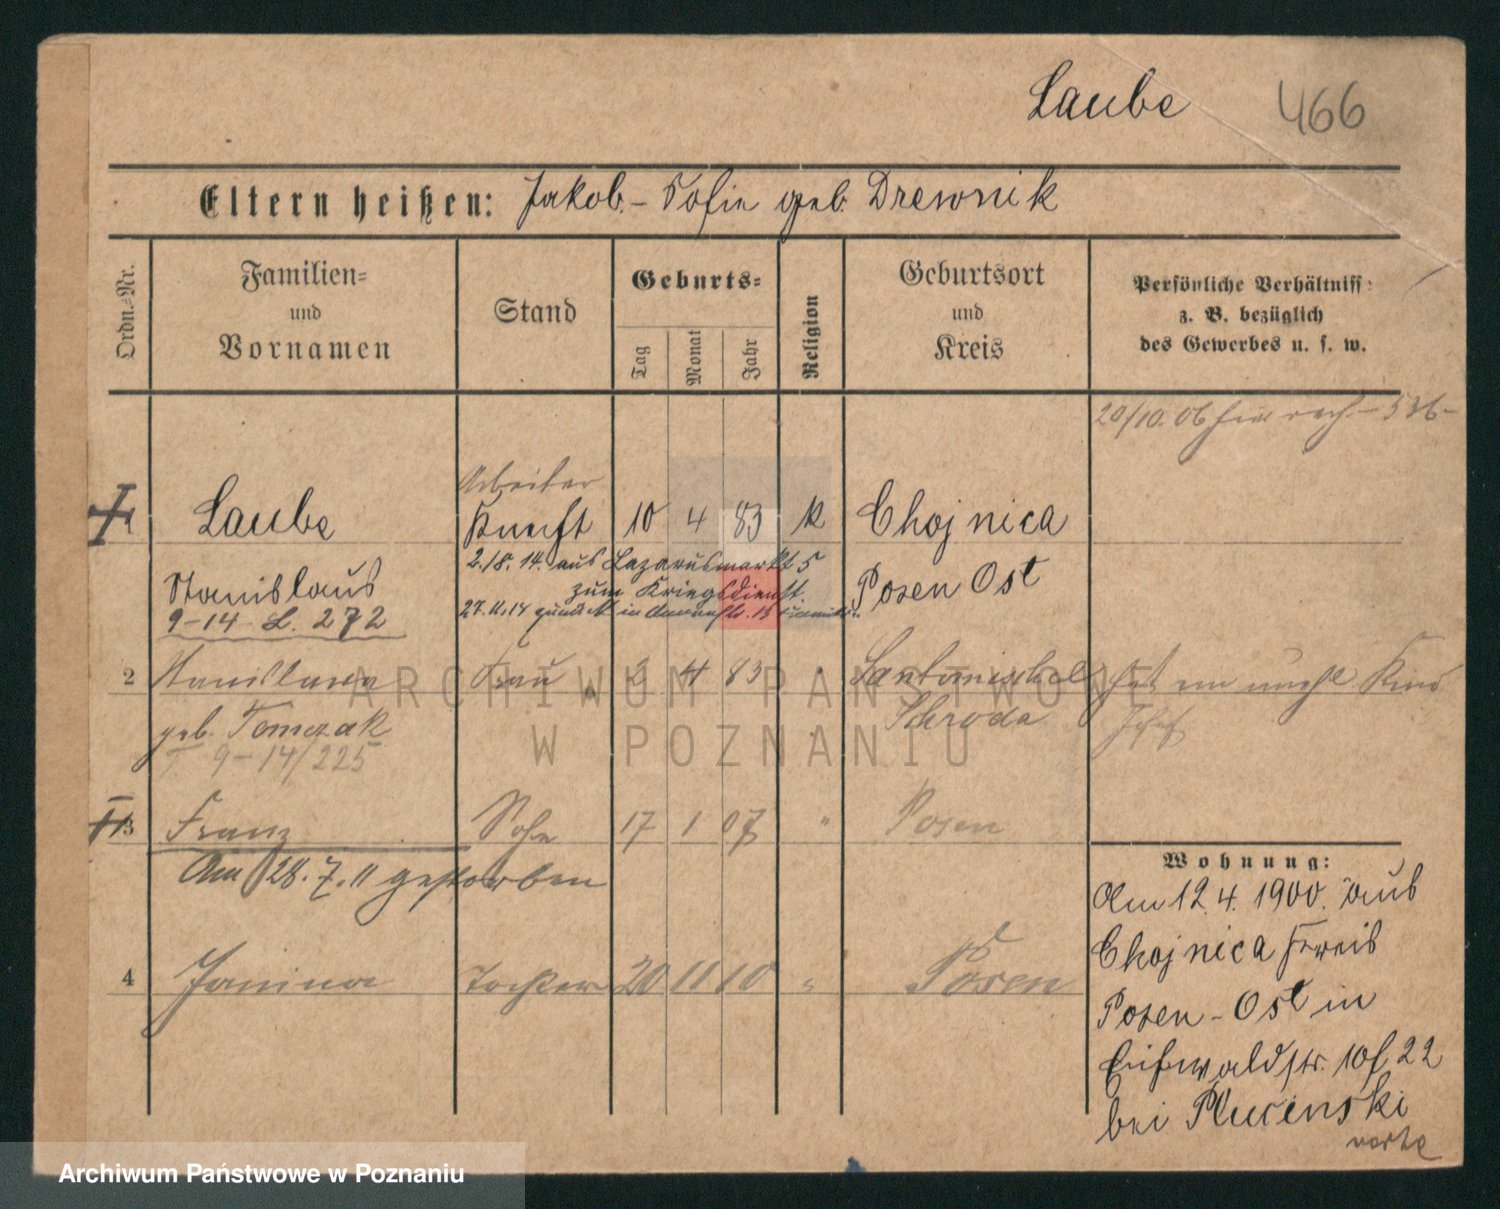 Laube 466
Eltern heißen: Jakob. - Sofie geb. Drewnik
Ordn.-Nr.
Familien-
und
Vornamen
Stand
Geburts-
Tag
Monat
Jahr
Religion
Geburtsort
und
Kreis
Persönliche Verhältniss
z. B. bezüglich
des Gewerbes u. s. w.
20/10. 06
Arbeiter
1 Laube Knecht 10 4 83 k Chojnica
2./8. 14. aus Lazarusmarkt 5
Stanislaus zum Kriegsdienst. Posen Ost
9-14 L. 272 27.11.14 zurück in
2 Stanislawa Frau 2 4 83 " Santomischel hat ein unehl. Kind
geb. Tomczak Schroda Josef
T 9-14/225
3 Franz Sohn 17 1 07 " Posen
Am 28. 7. 11 gestorben
4 Janina Tochter 20 11 10 " Posen
Wohnung:
Am 12. 4. 1900. aus
Chojnica Kreis
Posen - Ost in
bei Plucinski
ARCHIWUM PAŃSTWOWE
W POZNANIU
Archiwum Państwowe w Poznaniu